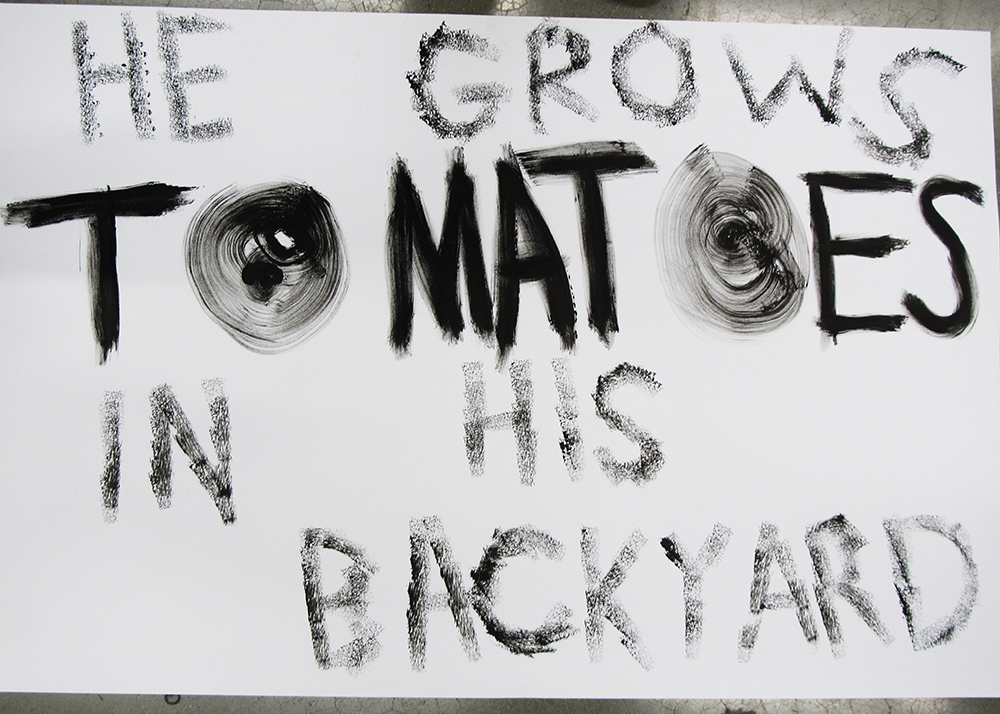 HE GROWS
TOMATOES
IN HIS
BACKYARD